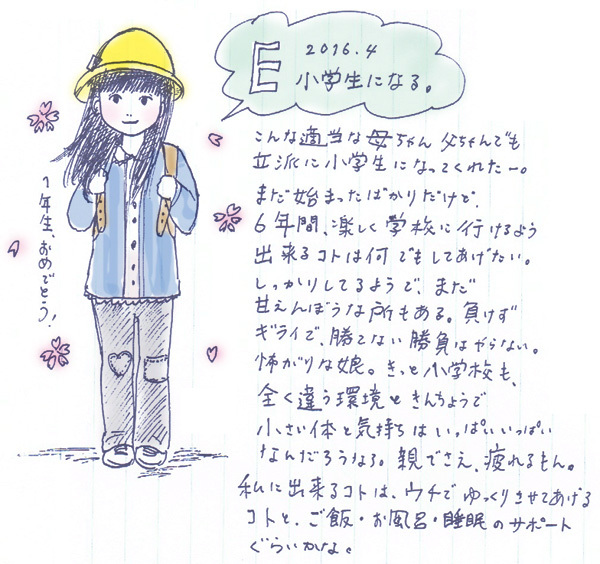 E 2016.4
小学生になる。
こんな適当な母ちゃん父ちゃんでも
立派に小学生になってくれたー。
まだ始まったばかりだけど、
6年間、楽しく学校に行けるよう
出来るコトは何でもしてあげたい。
しっかりしてるようで、まだ
甘えんぼうな所もある。負けず
ギライで、勝てない勝負はやらない。
怖がりな娘。きっと小学校も、
全く違う環境ときんちょうで
小さい体と気持ちはいっぱいいっぱい
なんだろうなぁ。親でさえ、疲れるもん。
私に出来るコトは、ウチでゆっくりさせてあげる
コトと、ご飯・お風呂・睡眠のサポート
ぐらいかな。
1年生、おめでとう!